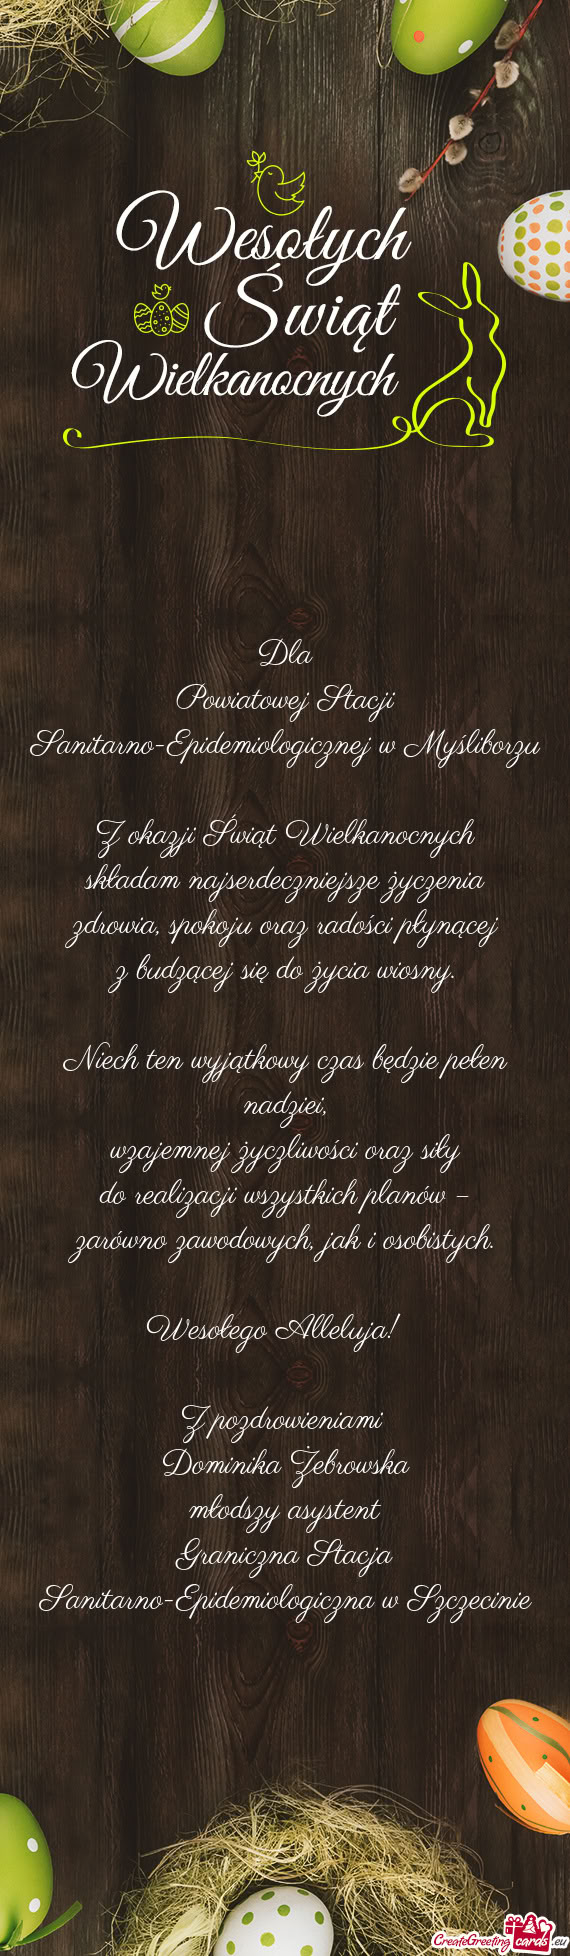 Wesołych
Świąt
Wielkanocnych
Dla
Powiatowej Stacji
Sanitarno-Epidemiologicznej w Myśliborzu
Z okazji Świąt Wielkanocnych
składam najserdeczniejsze życzenia
zdrowia, spokoju oraz radości płynącej
z budzącej się do życia wiosny.
Niech ten wyjątkowy czas będzie pełen
nadziei,
wzajemnej życzliwości oraz siły
do realizacji wszystkich planów –
zarówno zawodowych, jak i osobistych.
Wesołego Alleluja!
Z pozdrowieniami
Dominika Zebrowska
młodszy asystent
Graniczna Stacja
Sanitarno-Epidemiologiczna w Szczecinie
CreateGreeting cards.eu